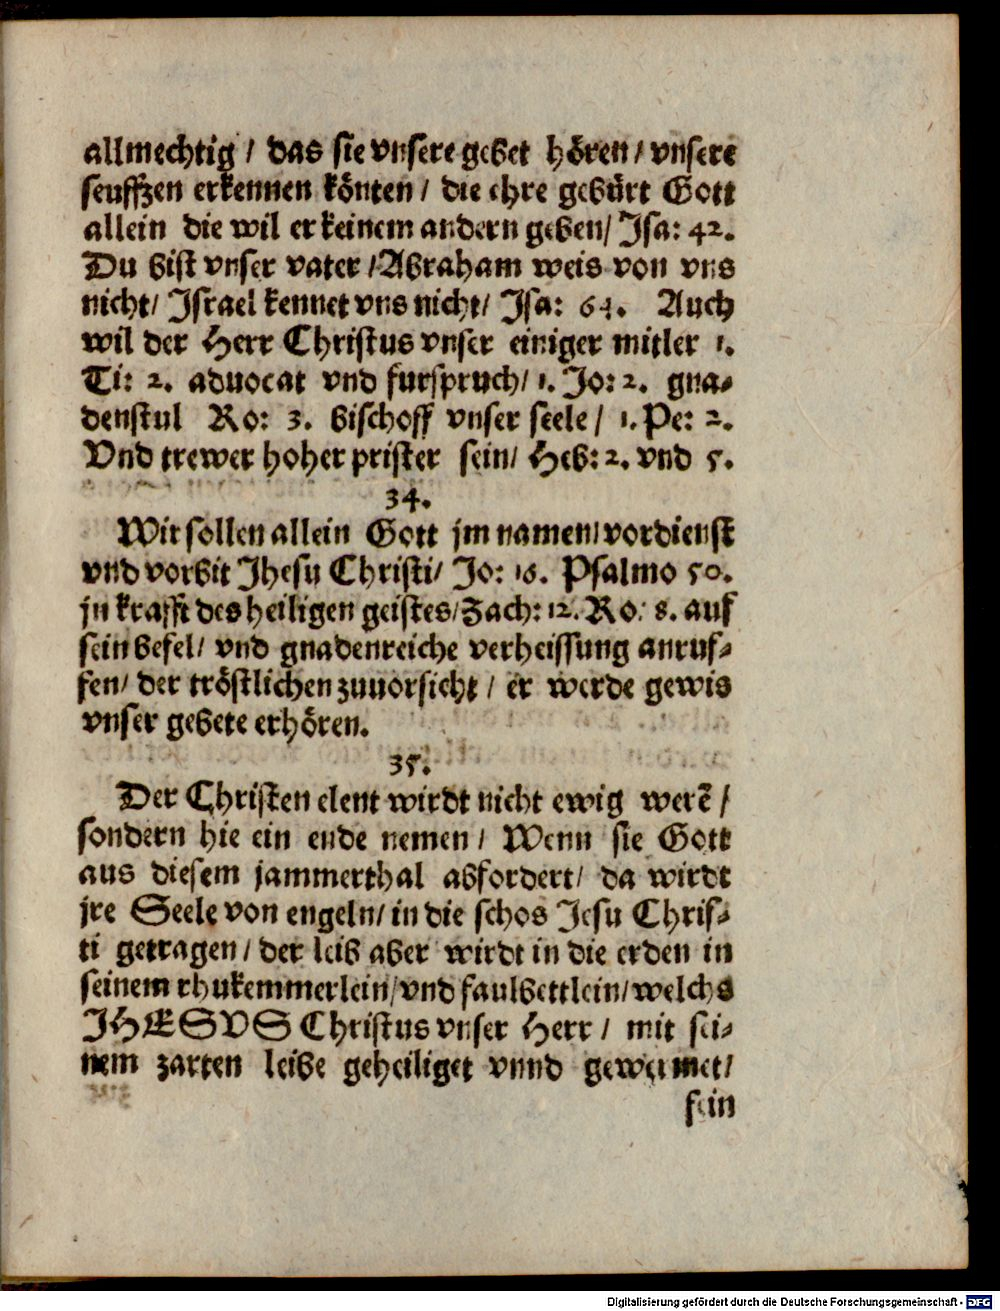 allmechtig / das sie vnsere gebet hören / vnsere
seufftzen erkennen könten / die ehre gebürt Gott
allein die wil er keinem andern geben / Jsa: 42.
Du bist vnser vater / Abraham weis von vns
nicht / Jsrael kennet vns nicht / Jsa: 64. Auch
wil der Herr Christus vnser einiger mitler 1.
Ti: 2. aduocat vnd furspruch / 1. Jo: 2. gna-
denstul Ro: 3. bischoff vnser seele / 1. Pe: 2.
Vnd trewer hoher prister sein / Heb: 2. vnd 5.
34.
Wir sollen allein Gott jm namen / vordienst
vnd vorbit Jhesu Christi / Jo: 16. Psalmo 50.
jn krafft des heiligen geistes / Zach: 12. Ro: 8. auf
sein befel / vnd gnadenreiche verheissung anruf-
fen / der tröstlichen zuuorsicht / er werde gewis
vnser gebete erhören.
35.
Der Christen elent wirdt nicht ewig werē /
sondern hie ein ende nemen / Wenn sie Gott
aus diesem jammerthal abfordert / da wirdt
jre Seele von engeln / in die schos Jesu Chris-
ti getragen / der leib aber wirdt in die erden in
seinem rhukemmerlein / vnd faulbettlein / welchs
JHESVS Christus vnser Herr / mit sei-
nem zarten leibe geheiliget vnnd geweimet /
sein
Digitalisierung gefördert durch die Deutsche Forschungsgemeinschaft - DFG